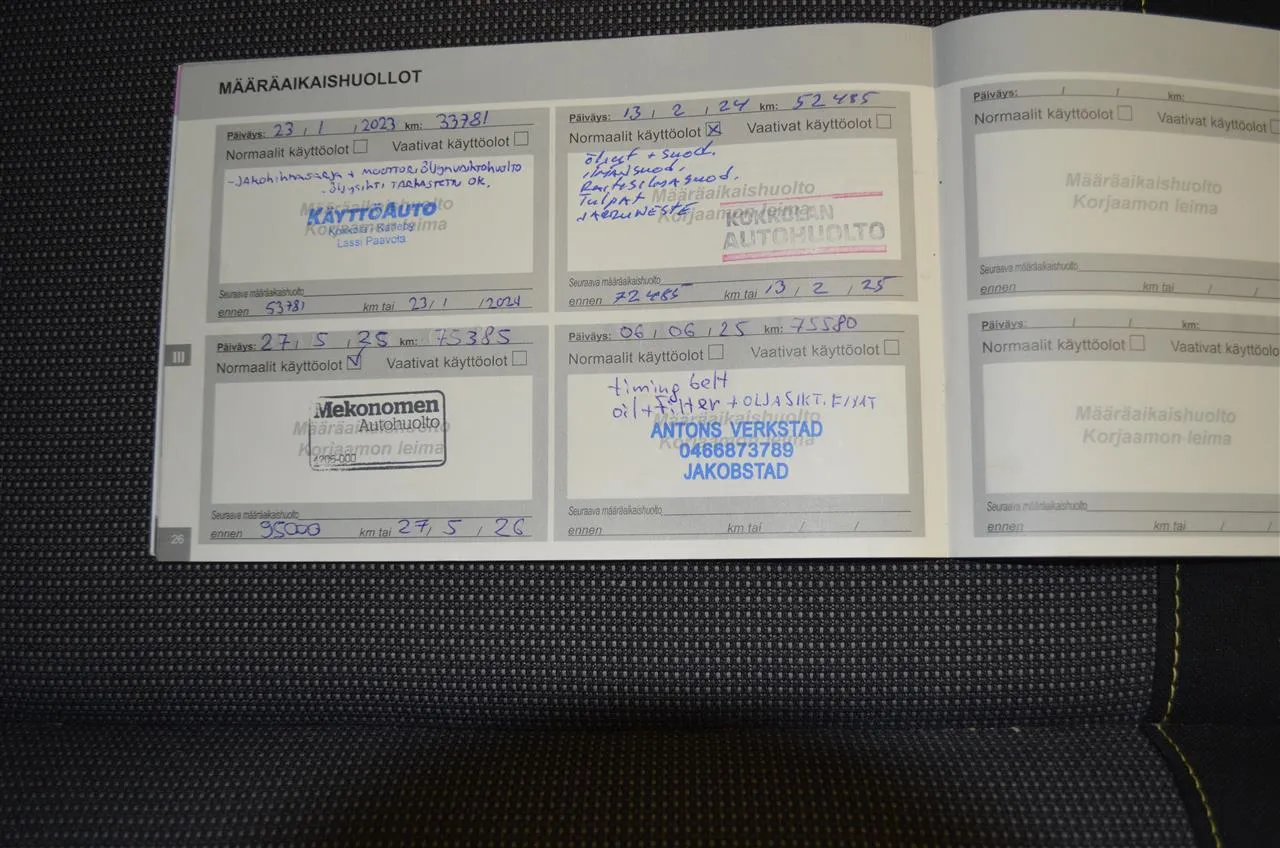 MÄÄRÄAIKAISHUOLLOT
Päiväys: 23 / 1 / 2023 km: 33781
Normaalit käyttöolot Vaativat käyttöolot
-JAKOHIHNASARJA + MOOTTORIÖLJYNVAIHTOHUOLTO
-ÖLJYSIHTI TARKASTETTU OK.
Määräaikaishuolto
Korjaamon leima
KÄYTTÖAUTO
Kokkola - Karleby
Lassi Paavola
Seuraava määräaikaishuolto
ennen 53781 km tai 23 / 1 / 2024
Päiväys: 13 / 2 / 24 km: 52485
Normaalit käyttöolot Vaativat käyttöolot
öljyt + suod.
ilmansuod.
Raitisilmasuod.
Tulpat
JARRUNESTE
Määräaikaishuolto
Korjaamon leima
KOKKOLAN
AUTOHUOLTO
Seuraava määräaikaishuolto
ennen 72485 km tai 13 / 2 / 25
Päiväys: 27 / 5 / 25 km: 75385
Normaalit käyttöolot Vaativat käyttöolot
Määräaikaishuolto
Korjaamon leima
Mekonomen
Autohuolto
Seuraava määräaikaishuolto
ennen 95000 km tai 27 / 5 / 26
Päiväys: 06 / 06 / 25 km: 75580
Normaalit käyttöolot Vaativat käyttöolot
timing belt
oil + filter + OLJASIKT. FIXAT
Määräaikaishuolto
Korjaamon leima
ANTONS VERKSTAD
0466873789
JAKOBSTAD
Seuraava määräaikaishuolto
ennen km tai / /
III
26
Päiväys: / / km:
Normaalit käyttöolot Vaativat käyttöolot
Määräaikaishuolto
Korjaamon leima
Seuraava määräaikaishuolto
ennen km tai / /
Päiväys: / / km:
Normaalit käyttöolot Vaativat käyttöolo
Määräaikaishuolto
Korjaamon leima
Seuraava määräaikaishuolto
ennen km tai / /